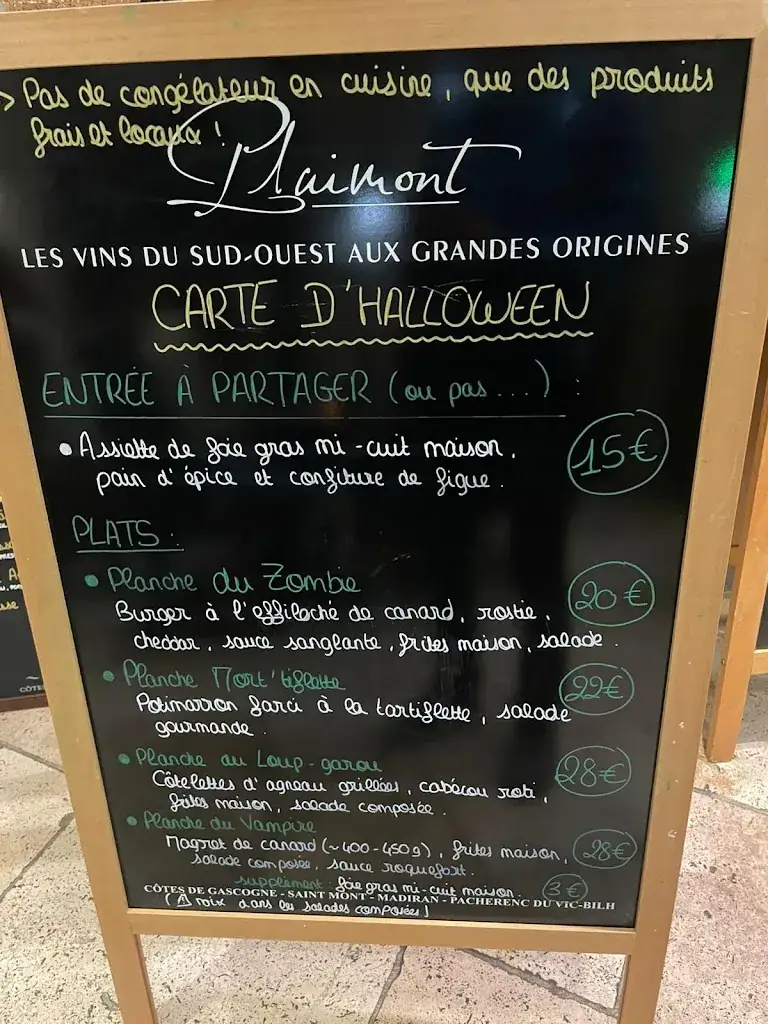 > Pas de congélateur en cuisine, que des produits
frais et locaux !
Plaimont
LES VINS DU SUD-OUEST AUX GRANDES ORIGINES
CARTE D'HALLOWEEN
ENTRÉE À PARTAGER (ou pas...) :
• Assiette de foie gras mi-cuit maison, 15€
pain d'épice et confiture de figue.
PLATS :
• Planche du Zombie 20€
Burger à l'effiloché de canard, rostie,
cheddar, sauce sanglante, frites maison, salade.
• Planche Mort'tiflette 22€
Potimarron farci à la tartiflette, salade
gourmande.
• Planche au Loup-garou 28€
Côtelettes d'agneau grillées, cabécou roti,
frites maison, salade composée.
• Planche du Vampire
Magret de canard (~400-450g), frites maison, 28€
salade composée, sauce roquefort.
supplément : foie gras mi-cuit maison. 3€
CÔTES DE GASCOGNE - SAINT MONT - MADIRAN - PACHERENC DU VIC-BILH
(⚠ noix dans les salades composées)